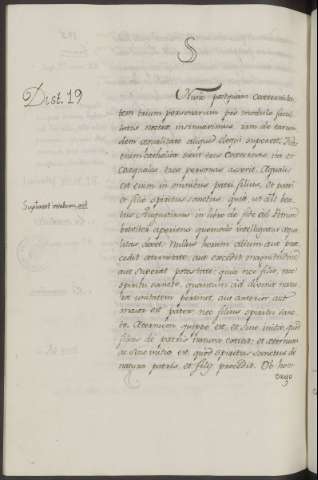 S
Dist. 19
Nunc postquam coaeternita-
tem trium personarum pro modulo facul-
tatis nostrae insinuavimus, iam de earum-
dem aequalitate aliquid eloqui superest. Fi-
des enim catholica sicut eas coaeternas, ita et
coaequales tres personas asserit. Aequalis
est enim in omnibus patri filius, et patri
et filio spiritus sanctus, quia, ut ait bea-
tus Augustinus in libro de fide ad Petrum
breviter aperiens quomodo intelligatur aequa-
litas docet. Nullus horum alium aut prae-
cedit aeternitate, aut excedit magnitudine
aut superat potestate: quia nec filio, nec
spiritu sancto, quantum ad divinae natu-
rae unitatem pertinet, aut anterior aut
maior est pater, nec filius spiritu sanc-
to. Aeternum quippe est, et sine initio, quod
filius de patris natura extitit; et aeternum
ac sine initio est quod spiritus sanctus de
natura patris, et filij procedit. Ob hoc
ergo